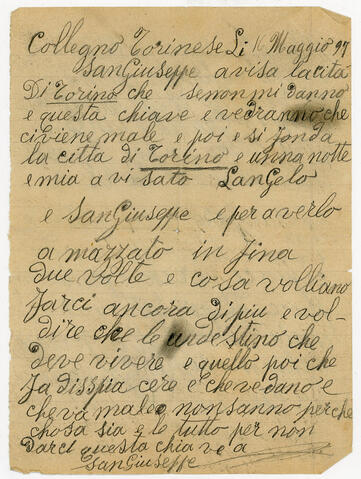 Collegno Torinese Li 16 Maggio 97
SanGiuseppe avisa lacità
Di Torino che senonmi danno
e questa chiave e vedranno che
civiene male e poi e si fonda
la città di Torino e unna notte
e mia avi sato LanGelo
e SanGiuseppe e per averlo
a mazzato in fina
due volte e cosa volliano
farci ancora di piu e vol-
dire che le undestino che
deve vivere e quello poi che
fa disspia cere e chevedano e
cheva male e nonsanno perche
chosa sia e le tutto per non
Darci questa chia ve a
SanGiuseppe